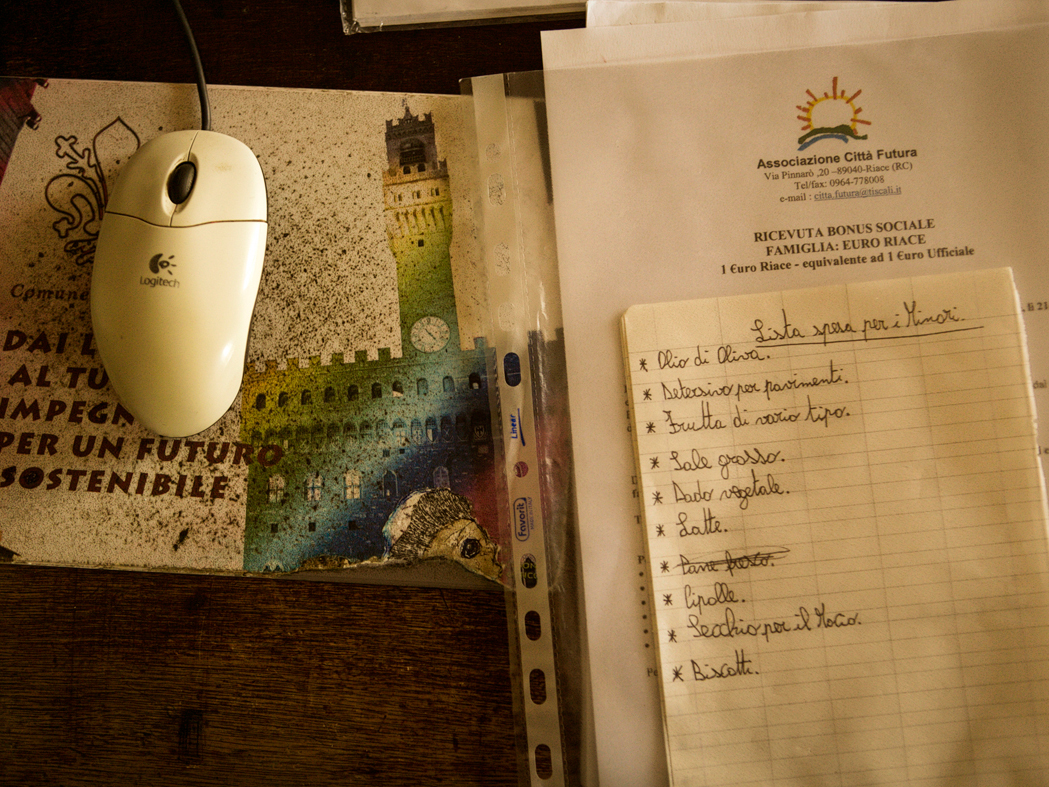 Logitech
Comune
DAI L
AL TU
IMPEGN
PER UN FUTURO
SOSTENIBILE
Linear
Favorit
Associazione Città Futura
Via Pinnarò ,20 –89040-Riace (RC)
Tel/fax: 0964-778008
e-mail : citta.futura@tiscali.it
RICEVUTA BONUS SOCIALE
FAMIGLIA: EURO RIACE
1 €uro Riace - equivalente ad 1 €uro Ufficiale
, lì 21
Lista spesa per i Minori.
* Olio di Oliva.
* Detersivo per pavimenti.
* Frutta di vario tipo.
* Sale grosso.
* Dado vegetale.
* Latte.
* Pane fresco.
* Cipolle.
* Secchio per il Mocio.
* Biscotti.